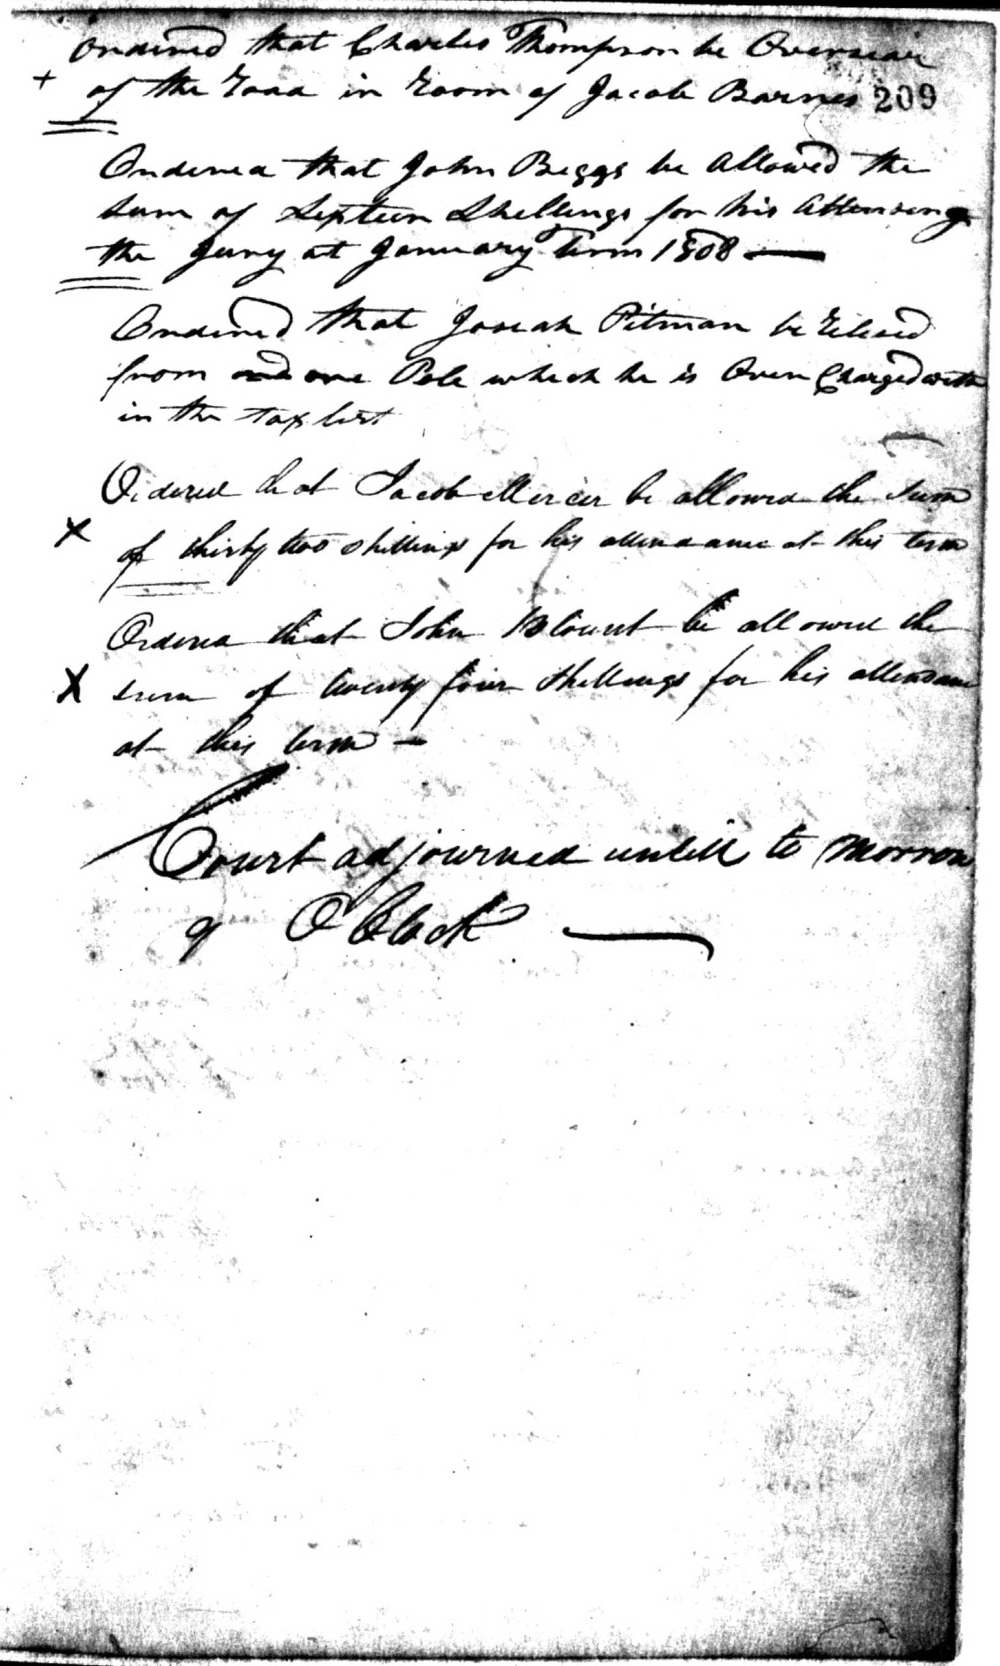 Ordered that Charles Thompson be Overseair
+ of the Road in Room of Jacob Barnes 209
Ordered that John Beggs be Allowed the
Sum of Sixteen Shellings for his Attending
the Jury at January Term 1808 —
Ordered that Josiah Pitman be Releasd
from one Pole which he is Over Charged with
in the tax list
Ordered that Jacob Mercer be allowed the Sum
X of thirty two shillings for his attendance at this term
Ordered that John Blount be allowed the
X sum of twenty four Shellings for his attendance
at this term —
Court adjourned untill to Morrow
9 O Clock —